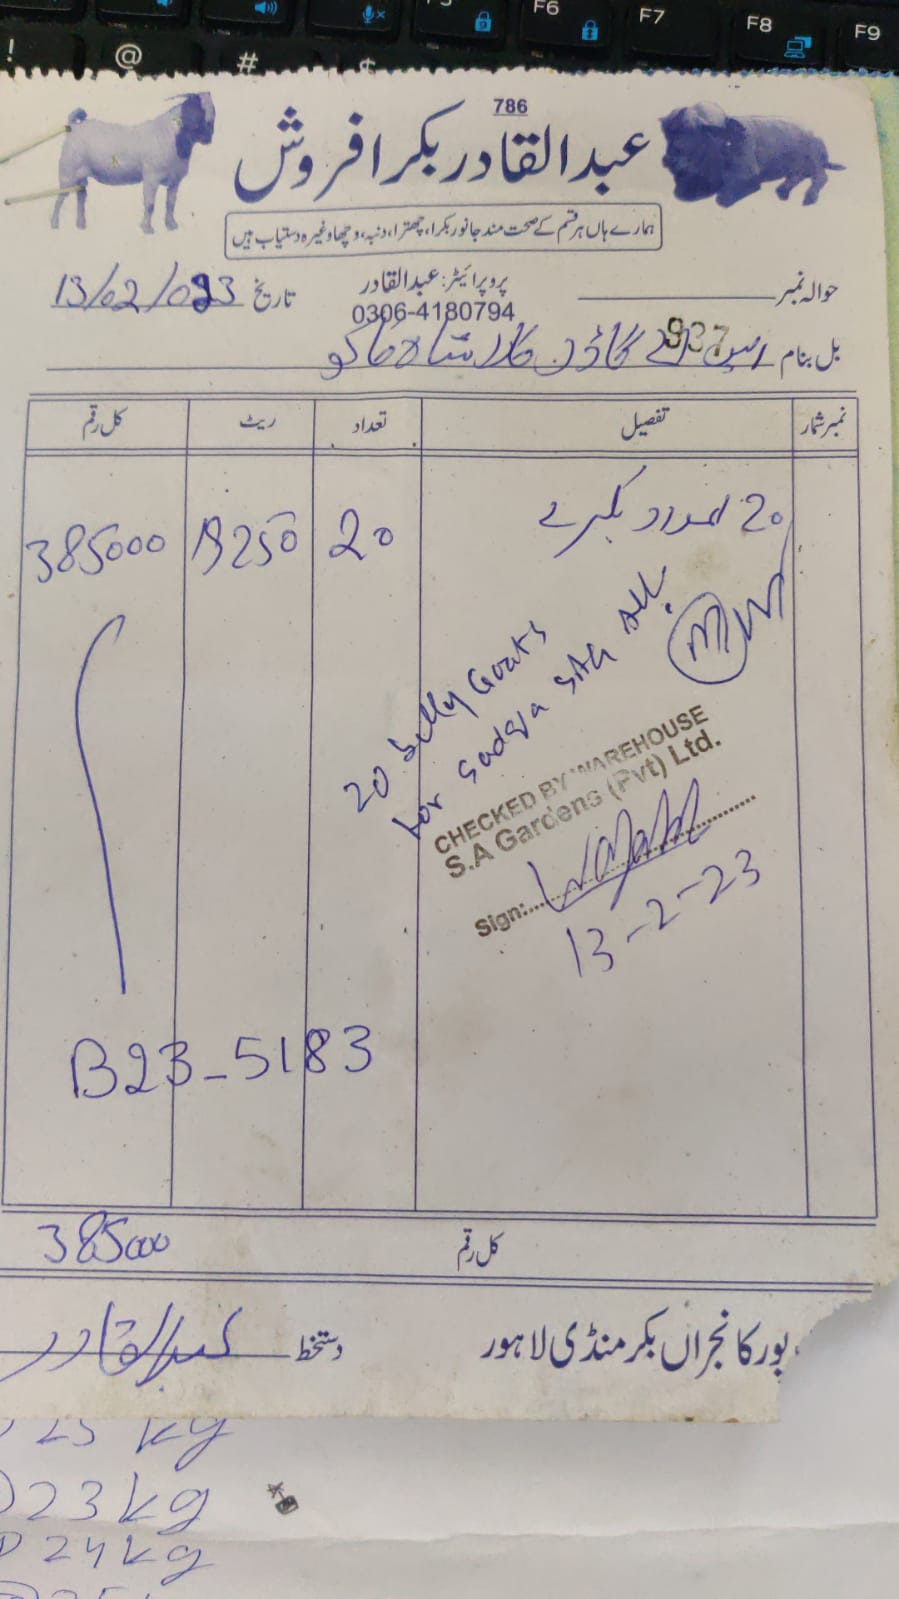 F6
F7
F8
F9
!
@
#
786
عبدالقادر بکرا فروش
ہمارے ہاں ہر قسم کے صحت مند جانور بکرا، چھترا، دنبہ، وچھا وغیرہ دستیاب ہیں
حوالہ نمبر
پروپرائیٹر: عبدالقادر
0306-4180794
تاریخ 13/02/023
بل بنام ایس اے گارڈن
937
نمبر شمار تفصیل تعداد ریٹ کل رقم
20 عدد بکرے 20 19250 385000
20 Belly Goats
for Sadqa
CHECKED BY WAREHOUSE
S.A Gardens (Pvt) Ltd.
Sign:
13-2-23
B23-5183
کل رقم 385000
پور کانجراں بکر منڈی لاہور
دستخط عبدالقادر
23 kg
24 kg